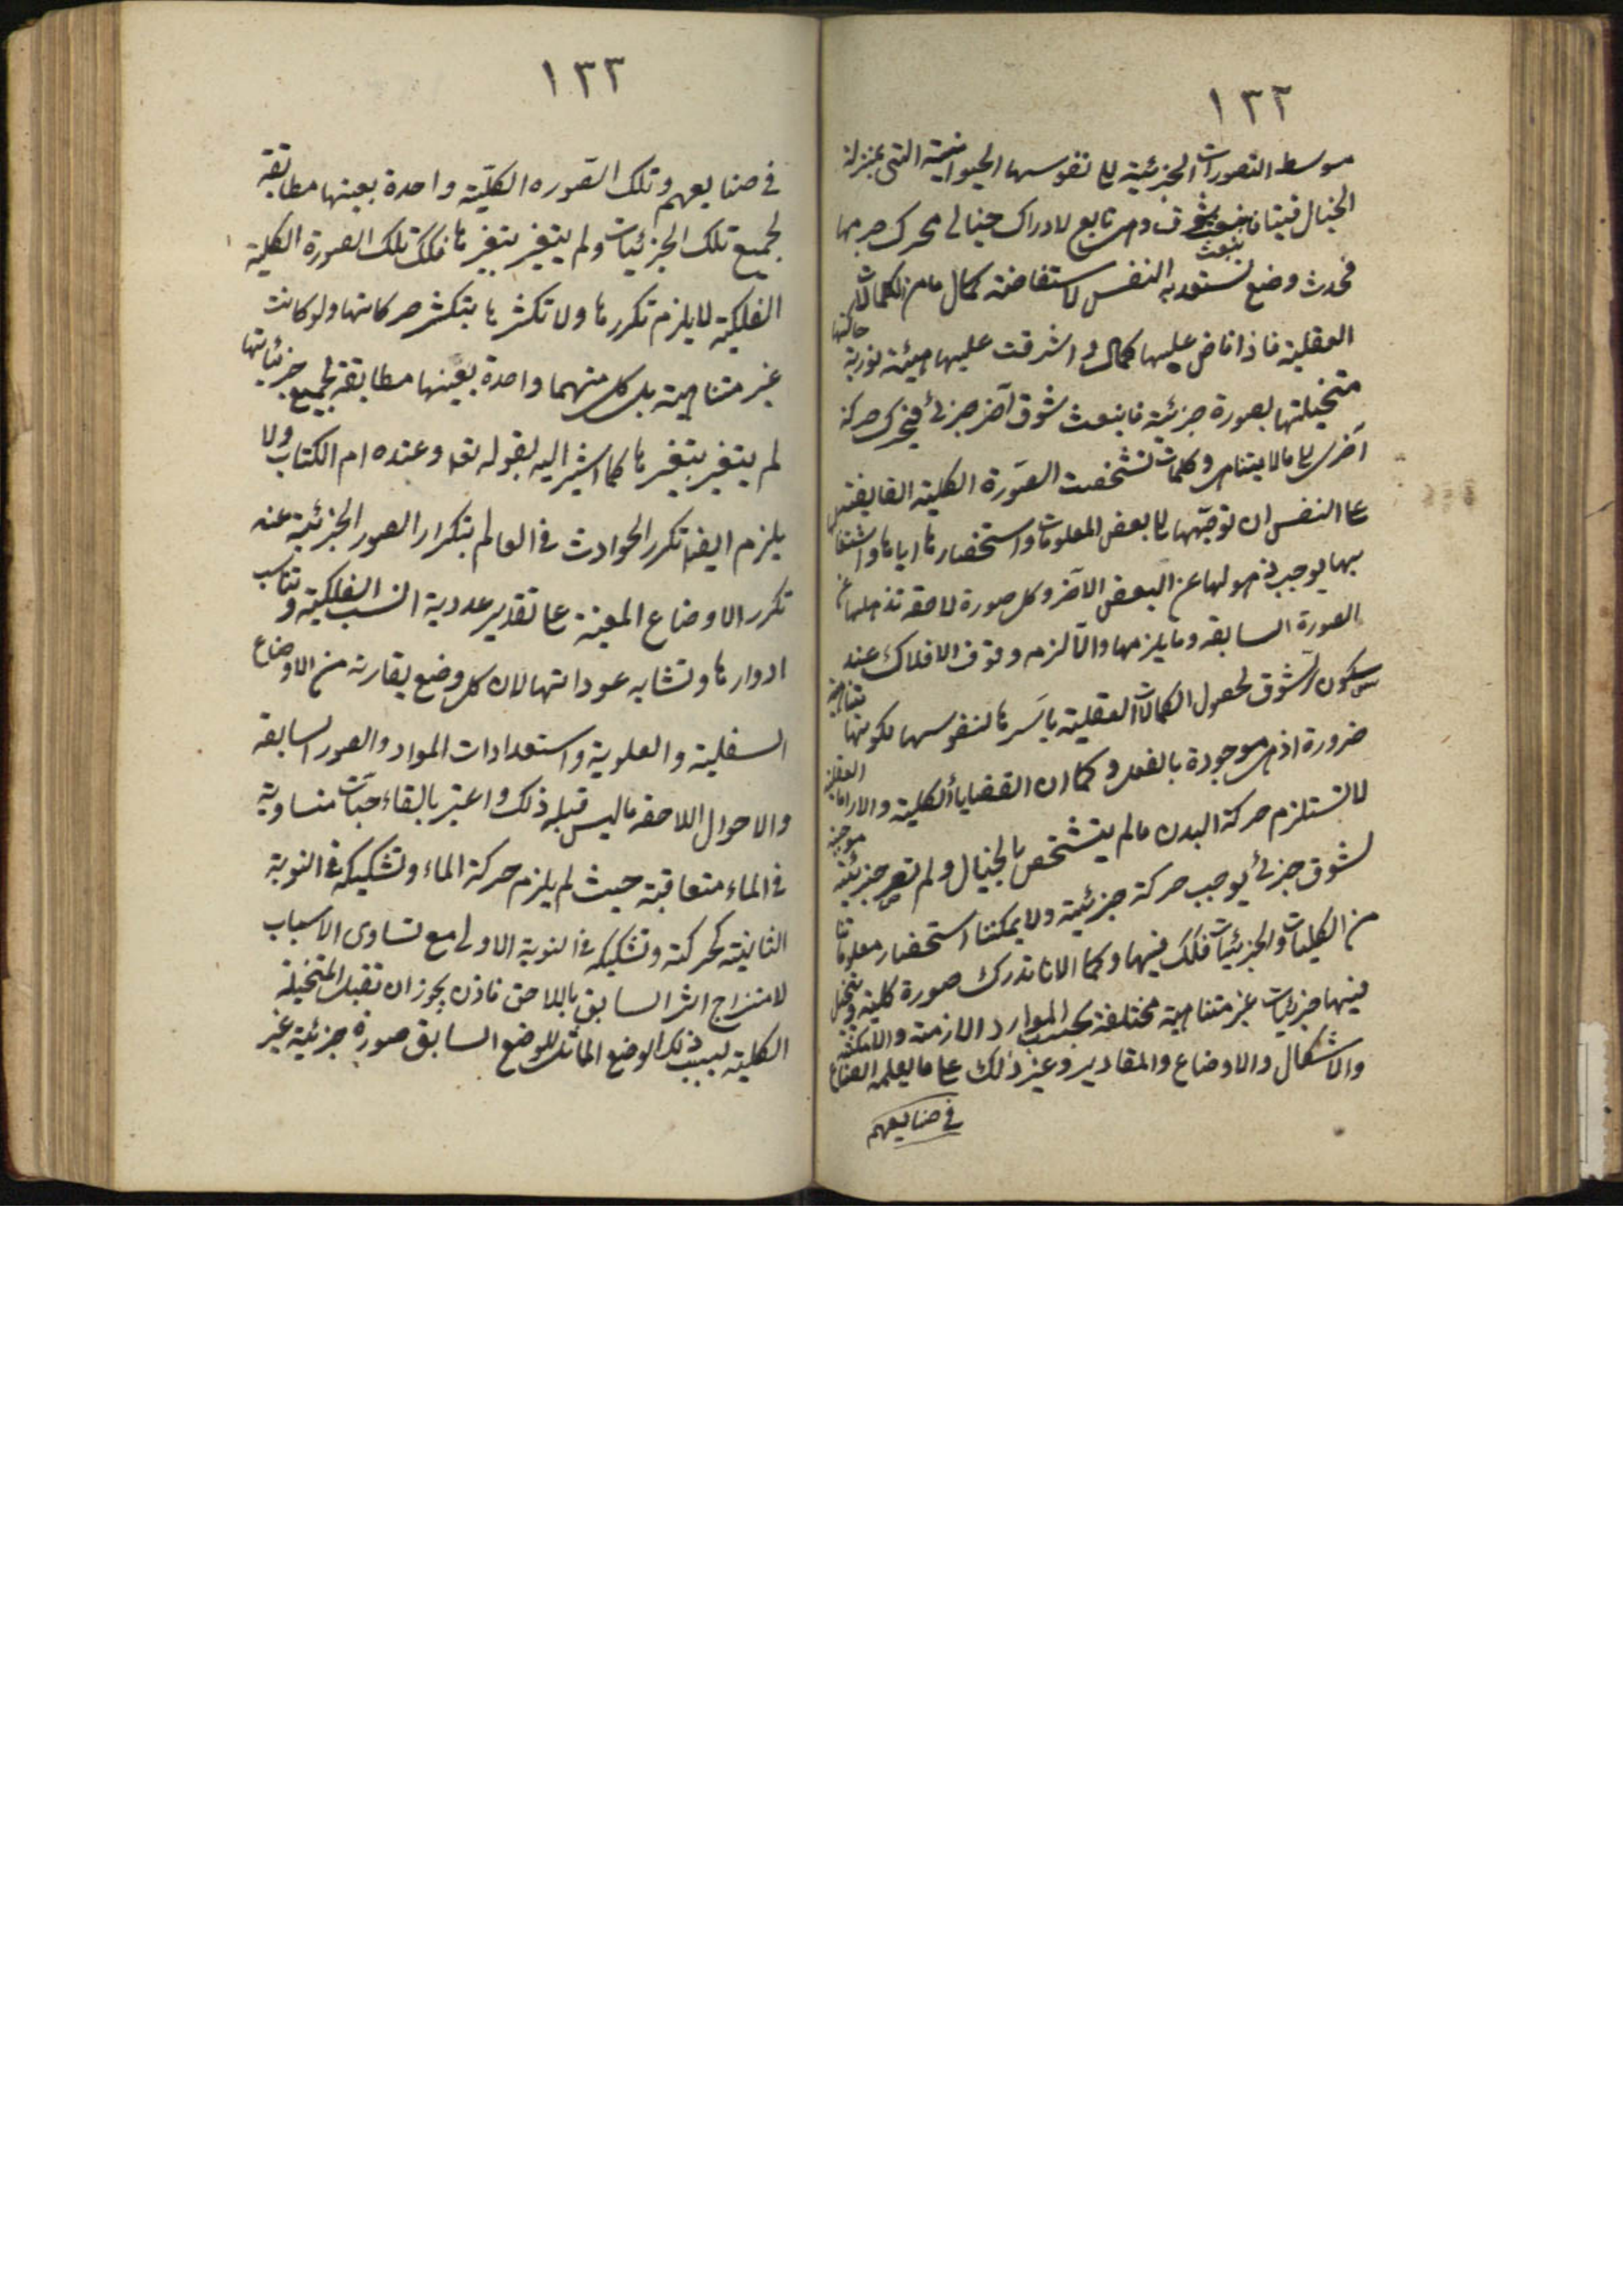 ١٣٢
موسط التصورات الجزئية الى نفوسها الحيوانية التى بمنزلة
الخيال فينا فانبعث شوق وهى تابع لادراك خيالى محرك جرمها
ينبعث
فحدث وضع تستعد به النفس لاستفاضة كمال ما من الكمالات
العقلية فاذا فاض عليها كمال او اشرقت عليها هيئة نورية حاكتها
متخيلتها بصورة جزئية فانبعث شوق آخر جزئى فيتحرك حركة
اخرى الى ما لا يتناهى وكلما تشخصت الصورة الكلية الفايضة
على النفس ان توجهها الى بعض المعلومات واستحضارها اياها واشتغا
بها يوجب ذهولها عن البعض الآخر وكل صورة لاحقة تذهلها عن
الصورة السابقة وما يلزمها والا لزم وقوف الافلاك عند
سكون الشوق لحصول الكمالات العقلية باسرها لنفوسها لكونها متناهية
ضرورة اذ هى موجودة بالفعل وكما ان القضايا الكلية والاراء العقلية
لا تستلزم حركة البدن ما لم يتشخص بالخيال ولم تصر جزئية موجبة
لشوق جزئى يوجب حركة جزئية ولا يمكننا استحضار معلوماتنا
من الكليات والجزئيات فكك فيها وكما الانا ندرك صورة كلية وتتخيل
فيها جزئيات غير متناهية مختلفة بحسب الموارد الازمنة والامكنة
والاشكال والاوضاع والمقادير وغير ذلك على ما يعلمه الصناع
في صنايعهم
١٣٣
في صنايعهم وتلك الصوره الكلية واحدة بعينها مطابقة
لجميع تلك الجزئيات ولم يتغير بتغيرها فكك تلك الصورة الكلية
الفلكية لا يلزم تكررها ولا تكثرها بتكثر حركاتها ولو كانت
غير متناهية بل كل منهما واحدة بعينها مطابقة لجميع جزئياتها
لم يتغير بتغيرها كما اشير اليه بقوله تعا وعنده ام الكتاب ولا
يلزم ايضا تكرر الحوادث في العالم بتكرار الصور الجزئية عند
تكرر الاوضاع المعينة على تقدير عددية النسب الفلكية وتناسب
ادوارها وتشابه عوداتها لان كل وضع يقارنه من الاوضاع
السفلية والعلوية واستعدادات المواد والصور السابقة
والاحوال اللاحقة ما ليس قبله ذلك واعتبر بالقاء حبات متساوية
في الماء متعاقبة حيث لم يلزم حركة الماء وتشكيكه في النوبة
الثانية كحركته وتشكيكه في النوبة الاولى مع تساوى الاسباب
لامتزاج اثر السابق باللاحق فاذن يجوز ان تقبل المتخيلة
الكلية بسبب ذلك الوضع المماثل للوضع السابق صورة جزئية غير